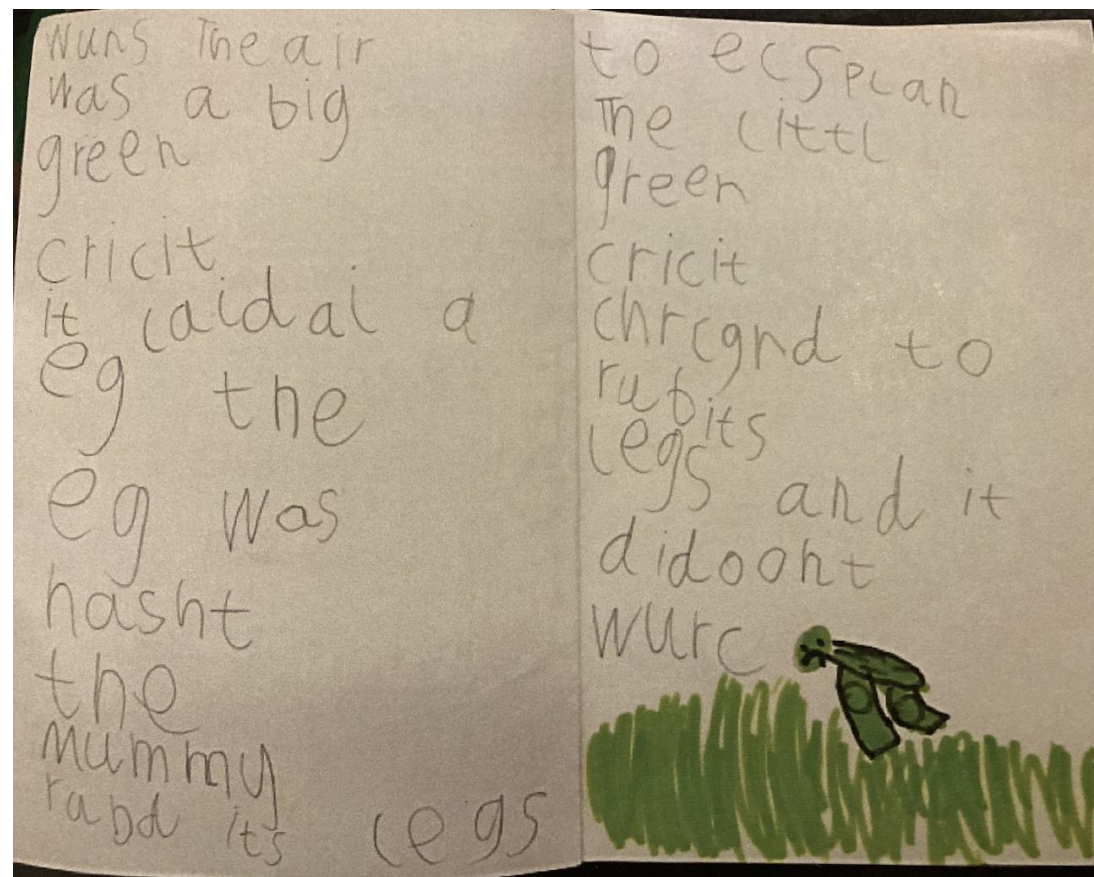 wuns The air
was a big
green
cricit
it caidai a
eg the
eg was
hasht
the
mummy
rabd its legs
to ecsplan
The littl
green
cricit
chrcgnd to
rub its
legs and it
didooht
wurc